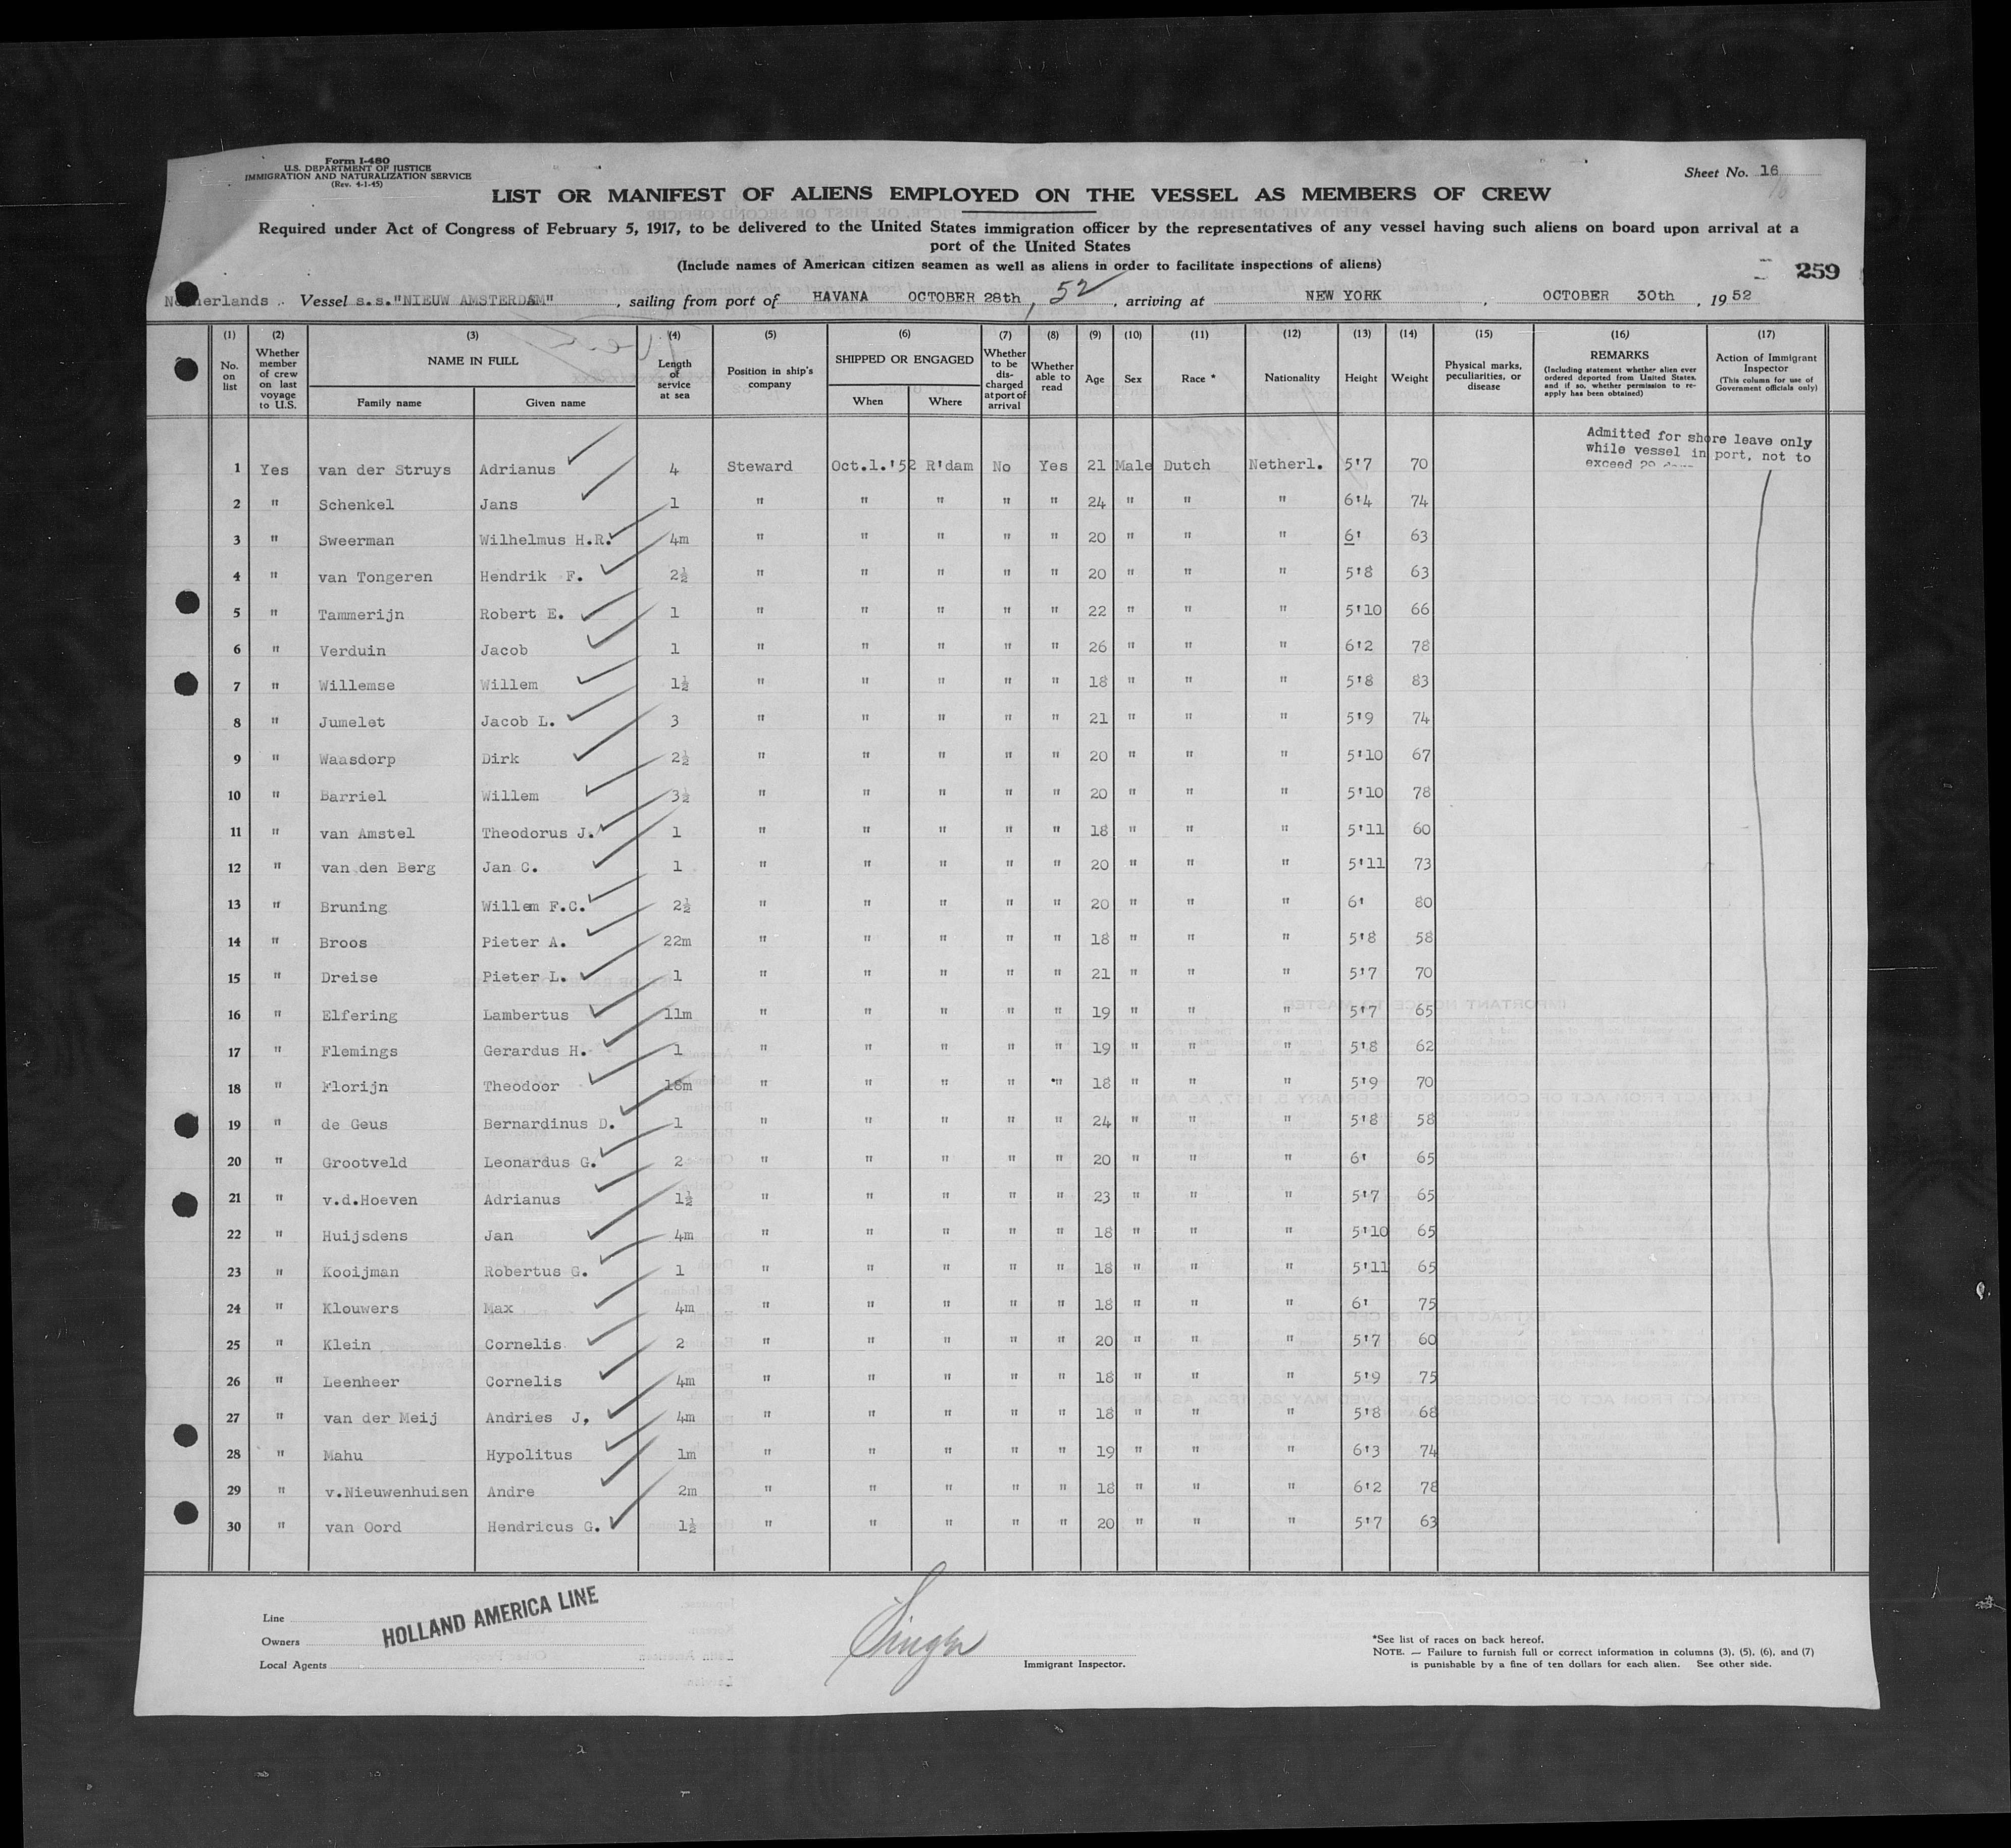 Form I-480
U.S. DEPARTMENT OF JUSTICE
IMMIGRATION AND NATURALIZATION SERVICE
(Rev. 4-1-45)
Sheet No. 16
LIST OR MANIFEST OF ALIENS EMPLOYED ON THE VESSEL AS MEMBERS OF CREW
Required under Act of Congress of February 5, 1917, to be delivered to the United States immigration officer by the representatives of any vessel having such aliens on board upon arrival at a
port of the United States
(Include names of American citizen seamen as well as aliens in order to facilitate inspections of aliens)
259
Netherlands Vessel s.s."NIEUW AMSTERDAM", sailing from port of HAVANA OCTOBER 28th, 52, arriving at NEW YORK, OCTOBER 30th, 1952
(1) (2) (3) (4) (5) (6) (7) (8) (9) (10) (11) (12) (13) (14) (15) (16) (17)
No. on list
Whether member of crew on last voyage to U.S.
NAME IN FULL
Family name Given name
Length of service at sea
Position in ship's company
SHIPPED OR ENGAGED
When Where
Whether to be discharged at port of arrival
Whether able to read
Age
Sex
Race *
Nationality
Height
Weight
Physical marks, peculiarities, or disease
REMARKS
(Including statement whether alien ever ordered deported from United States, and if so, whether permission to re-apply has been obtained)
Action of Immigrant Inspector
(This column for use of Government officials only)
Admitted for shore leave only
while vessel in port, not to
exceed 29 days
1 Yes van der Struys Adrianus 4 Steward Oct.1.'52 R'dam No Yes 21 Male Dutch Netherl. 5'7 70
2 " Schenkel Jans 1 " " " " " 24 " " " 6'4 74
3 " Sweerman Wilhelmus H.R. 4m " " " " " 20 " " " 6' 63
4 " van Tongeren Hendrik F. 2½ " " " " " 20 " " " 5'8 63
5 " Tammerijn Robert E. 1 " " " " " 22 " " " 5'10 66
6 " Verduin Jacob 1 " " " " " 26 " " " 6'2 78
7 " Willemse Willem 1½ " " " " " 18 " " " 5'8 83
8 " Jumelet Jacob L. 3 " " " " " 21 " " " 5'9 74
9 " Waasdorp Dirk 2½ " " " " " 20 " " " 5'10 67
10 " Barriel Willem 3½ " " " " " 20 " " " 5'10 78
11 " van Amstel Theodorus J. 1 " " " " " 18 " " " 5'11 60
12 " van den Berg Jan C. 1 " " " " " 20 " " " 5'11 73
13 " Bruning Willem F.C. 2½ " " " " " 20 " " " 6' 80
14 " Broos Pieter A. 22m " " " " " 18 " " " 5'8 58
15 " Dreise Pieter L. 1 " " " " " 21 " " " 5'7 70
16 " Elfering Lambertus 11m " " " " " 19 " " " 5'7 65
17 " Flemings Gerardus H. 1 " " " " " 19 " " " 5'8 62
18 " Florijn Theodoor 18m " " " " " 18 " " " 5'9 70
19 " de Geus Bernardinus D. 1 " " " " " 24 " " " 5'8 58
20 " Grootveld Leonardus G. 2 " " " " " 20 " " " 6' 65
21 " v.d.Hoeven Adrianus 1½ " " " " " 23 " " " 5'7 65
22 " Huijsdens Jan 4m " " " " " 18 " " " 5'10 65
23 " Kooijman Robertus G. 1 " " " " " 18 " " " 5'11 65
24 " Klouwers Max 4m " " " " " 18 " " " 6' 75
25 " Klein Cornelis 2 " " " " " 20 " " " 5'7 60
26 " Leenheer Cornelis 4m " " " " " 18 " " " 5'9 75
27 " van der Meij Andries J, 4m " " " " " 18 " " " 5'8 68
28 " Mahu Hypolitus 1m " " " " " 19 " " " 6'3 74
29 " v.Nieuwenhuisen Andre 2m " " " " " 18 " " " 6'2 78
30 " van Oord Hendricus G. 1½ " " " " " 20 " " " 5'7 63
Line
Owners
Local Agents
HOLLAND AMERICA LINE
Singer
Immigrant Inspector.
*See list of races on back hereof.
NOTE. — Failure to furnish full or correct information in columns (3), (5), (6), and (7)
is punishable by a fine of ten dollars for each alien. See other side.